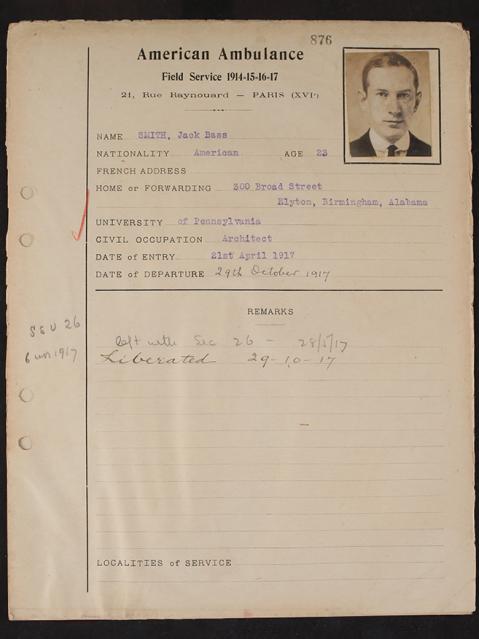 876
American Ambulance
Field Service 1914-15-16-17
21, Rue Raynouard — PARIS (XVIe)
NAME SMITH, Jack Bass
NATIONALITY American AGE 23
FRENCH ADDRESS
HOME or FORWARDING 300 Broad Street
Elyton, Birmingham, Alabama
UNIVERSITY of Pennsylvania
CIVIL OCCUPATION Architect
DATE of ENTRY 21st April 1917
DATE of DEPARTURE 29th October 1917
REMARKS
SSU 26
6 1917
left with Sec 26 - 28/5/17
Liberated 29-10-17
LOCALITIES of SERVICE